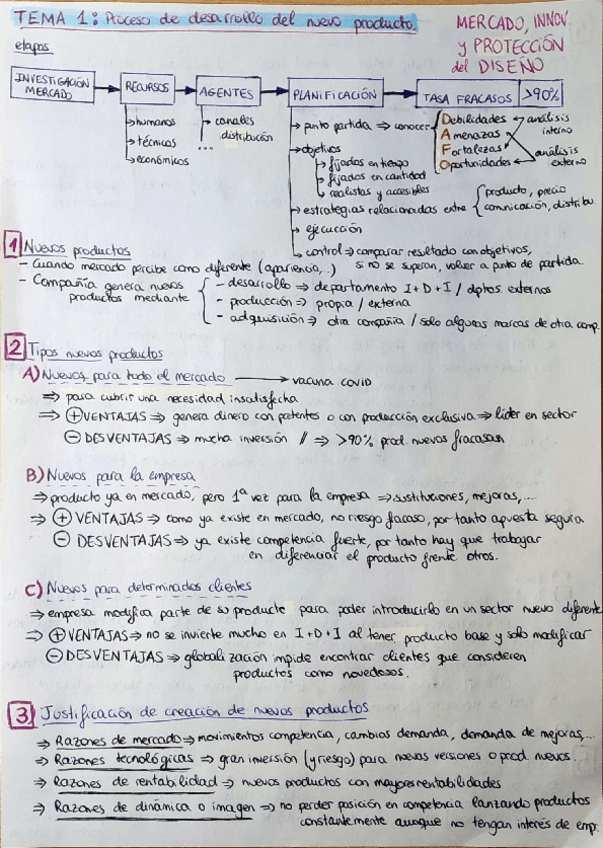 TEMA 1: Proceso de desarrollo del nuevo producto.
MERCADO, INNOV.
y PROTECCIÓN
del DISEÑO
etapas
INVESTIGACIÓN MERCADO → RECURSOS → AGENTES → PLANIFICACIÓN → TASA FRACASOS >90%
↳ humanos
↳ técnicos
↳ económicos
↳ canales distribución
...
→ punto partida ⇒ conocer
Debilidades
Amenazas
Fortalezas
Oportunidades
análisis interno
análisis externo
→ objetivos
↳ fijados en tiempo
↳ fijados en cantidad
↳ realistas y accesibles
→ estrategias relacionadas entre { producto, precio
comunicación, distribu.
→ ejecucción
→ control ⇒ comparar resultado con objetivos,
si no se superan, volver a punto de partida.
1 Nuevos productos
- Cuando mercado percibe como diferente (apariencia,...)
- Compañía genera nuevos
productos mediante
- desarrollo ⇒ departamento I+D+I / dptos. externos
- producción ⇒ propia / externa
- adquisición ⇒ otra compañía / solo algunas marcas de otra comp.
2 Tipos nuevos productos
A) Nuevos para todo el mercado → vacuna covid
⇒ para cubrir una necesidad insatisfecha
⇒ ⊕ VENTAJAS ⇒ genera dinero con patentes o con producción exclusiva ⇒ líder en sector
⊖ DESVENTAJAS ⇒ mucha inversión // ⇒ >90% prod. nuevos fracasan
B) Nuevos para la empresa
⇒ producto ya en mercado, pero 1ª vez para la empresa ⇒ sustituciones, mejoras,....
⇒ ⊕ VENTAJAS ⇒ como ya existe en mercado, no riesgo fracaso, por tanto apuesta segura
⊖ DESVENTAJAS ⇒ ya existe competencia fuerte, por tanto hay que trabajar
en diferenciar el producto frente otros.
C) Nuevos para determinados clientes
⇒ empresa modifica parte de su producto para poder introducirlo en un sector nuevo diferente
⇒ ⊕ VENTAJAS ⇒ no se invierte mucho en I+D+I al tener producto base y solo modificar
⊖ DESVENTAJAS ⇒ globalización impide encontrar clientes que consideren
productos como novedosos.
3 Justificación de creación de nuevos productos
⇒ Razones de mercado ⇒ movimientos competencia, cambios demanda, demanda de mejoras,...
⇒ Razones tecnológicas ⇒ gran inversión (y riesgo) para nuevas versiones o prod. nuevos.
⇒ Razones de rentabilidad ⇒ nuevos productos con mayores rentabilidades
⇒ Razones de dinámica o imagen ⇒ no perder posición en competencia lanzando productos
constantemente aunque no tengan interés de emp.